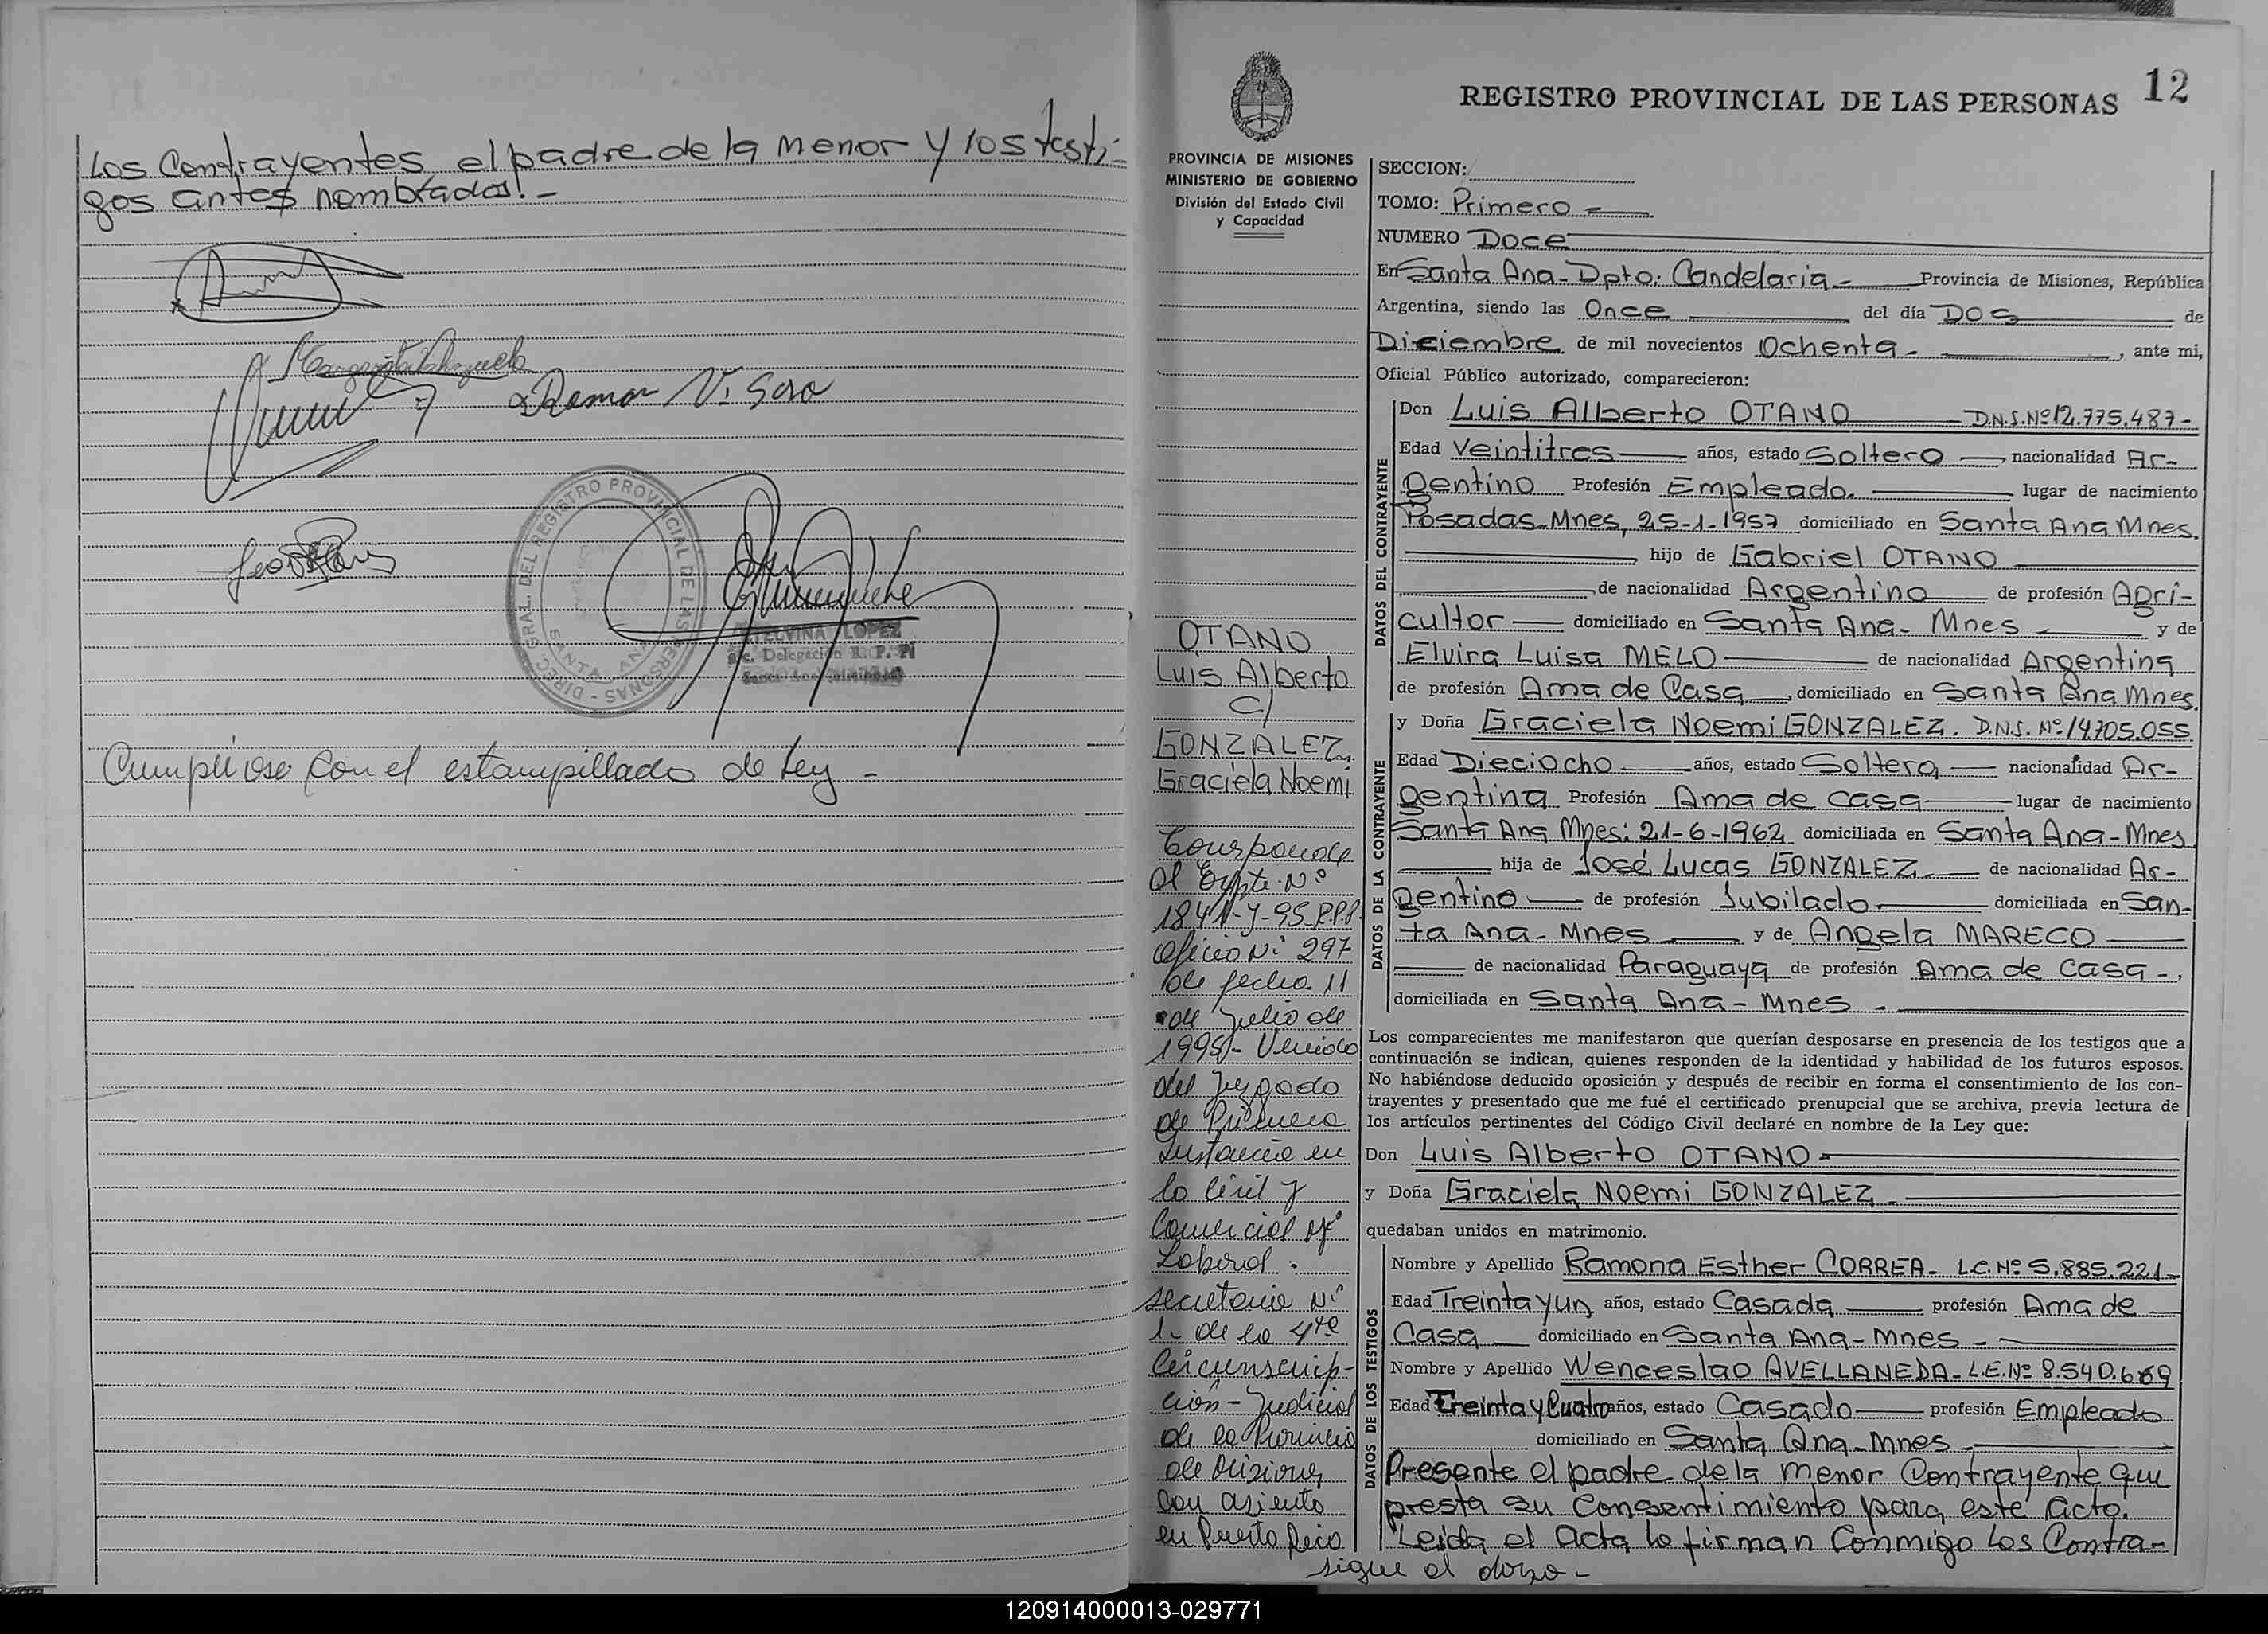 Los Contrayentes el padre de la menor y los testi-
gos antes nombrados!-
Margarita Valenzuela
Ramon V. Soso
DIREC. GRAL. DEL REGISTRO PROVINCIAL DE LAS PERSONAS - SANTA ANA
ETELVINA LOPEZ
a/c. Delegación R. P. P.
Cumplióse con el estampillado de Ley -
REGISTRO PROVINCIAL DE LAS PERSONAS 12
PROVINCIA DE MISIONES
MINISTERIO DE GOBIERNO
División del Estado Civil
y Capacidad
OTANO
Luis Alberto
c/
GONZALEZ,
Graciela Noemi
Corresponde
al Expte. Nº
1841-Y-95 R.P.P.
Oficio Nº 297
de fecha 11
de Julio de
1995- Venido
del Juzgado
de Primera
Instancia en
lo Civil y
Comercial y
Laboral.
Secretaria Nº
1- de la 4ta
Circunscrip-
ción - Judicial
de la Provincia
de Misiones
con asiento
en Puerto Rico
SECCION:
TOMO: Primero
NUMERO Doce
En Santa Ana - Dpto: Candelaria - Provincia de Misiones, República
Argentina, siendo las Once del día DOS de
Diciembre de mil novecientos Ochenta - , ante mi,
Oficial Público autorizado, comparecieron:
DATOS DEL CONTRAYENTE
Don Luis Alberto OTANO D.N.I. Nº 12.775.487-
Edad Veintitres años, estado Soltero nacionalidad Ar-
gentino Profesión Empleado. lugar de nacimiento
Posadas Mnes, 25-1-1957 domiciliado en Santa Ana Mnes.
hijo de Gabriel OTANO
de nacionalidad Argentino de profesión Agri-
cultor domiciliado en Santa Ana - Mnes y de
Elvira Luisa MELO de nacionalidad Argentina
de profesión Ama de Casa, domiciliado en Santa Ana Mnes.
DATOS DE LA CONTRAYENTE
y Doña Graciela Noemi GONZALEZ. D.N.I. Nº 14.705.055
Edad Dieciocho años, estado Soltera nacionalidad Ar-
gentina Profesión Ama de casa lugar de nacimiento
Santa Ana Mnes: 21-6-1962 domiciliada en Santa Ana - Mnes
hija de José Lucas GONZALEZ de nacionalidad Ar-
gentino de profesión Jubilado domiciliada en San-
ta Ana - Mnes y de Angela MARECO
de nacionalidad Paraguaya de profesión Ama de casa -,
domiciliada en Santa Ana - Mnes -
Los comparecientes me manifestaron que querían desposarse en presencia de los testigos que a
continuación se indican, quienes responden de la identidad y habilidad de los futuros esposos.
No habiéndose deducido oposición y después de recibir en forma el consentimiento de los con-
trayentes y presentado que me fué el certificado prenupcial que se archiva, previa lectura de
los artículos pertinentes del Código Civil declaré en nombre de la Ley que:
Don Luis Alberto OTANO -
y Doña Graciela Noemi GONZALEZ -
quedaban unidos en matrimonio.
DATOS DE LOS TESTIGOS
Nombre y Apellido Ramona Esther CORREA - L.C. Nº 5.885.221-
Edad Treinta y un años, estado Casada profesión Ama de
Casa domiciliado en Santa Ana - Mnes -
Nombre y Apellido Wenceslao AVELLANEDA - L.E. Nº 8.540.669
Edad Treinta y Cuatro años, estado Casado profesión Empleado
domiciliado en Santa Ana - Mnes
Presente el padre de la menor Contrayente que
presta su Consentimiento para este acto.
Leida el Acta la firman Conmigo Los Contra-
sigue al dorso -
120914000013-029771